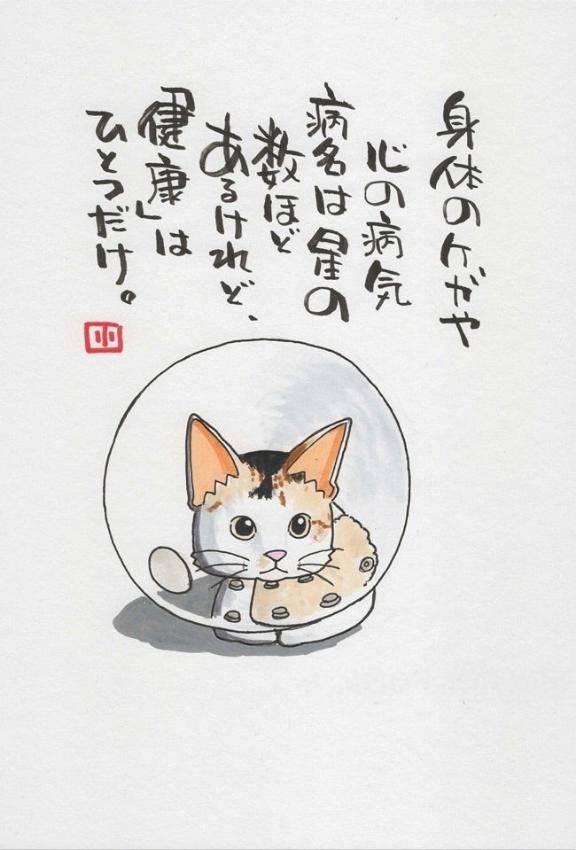 身体のケガや
心の病気
病名は星の
数ほど
あるけれど、
「健康」は
ひとつだけ。